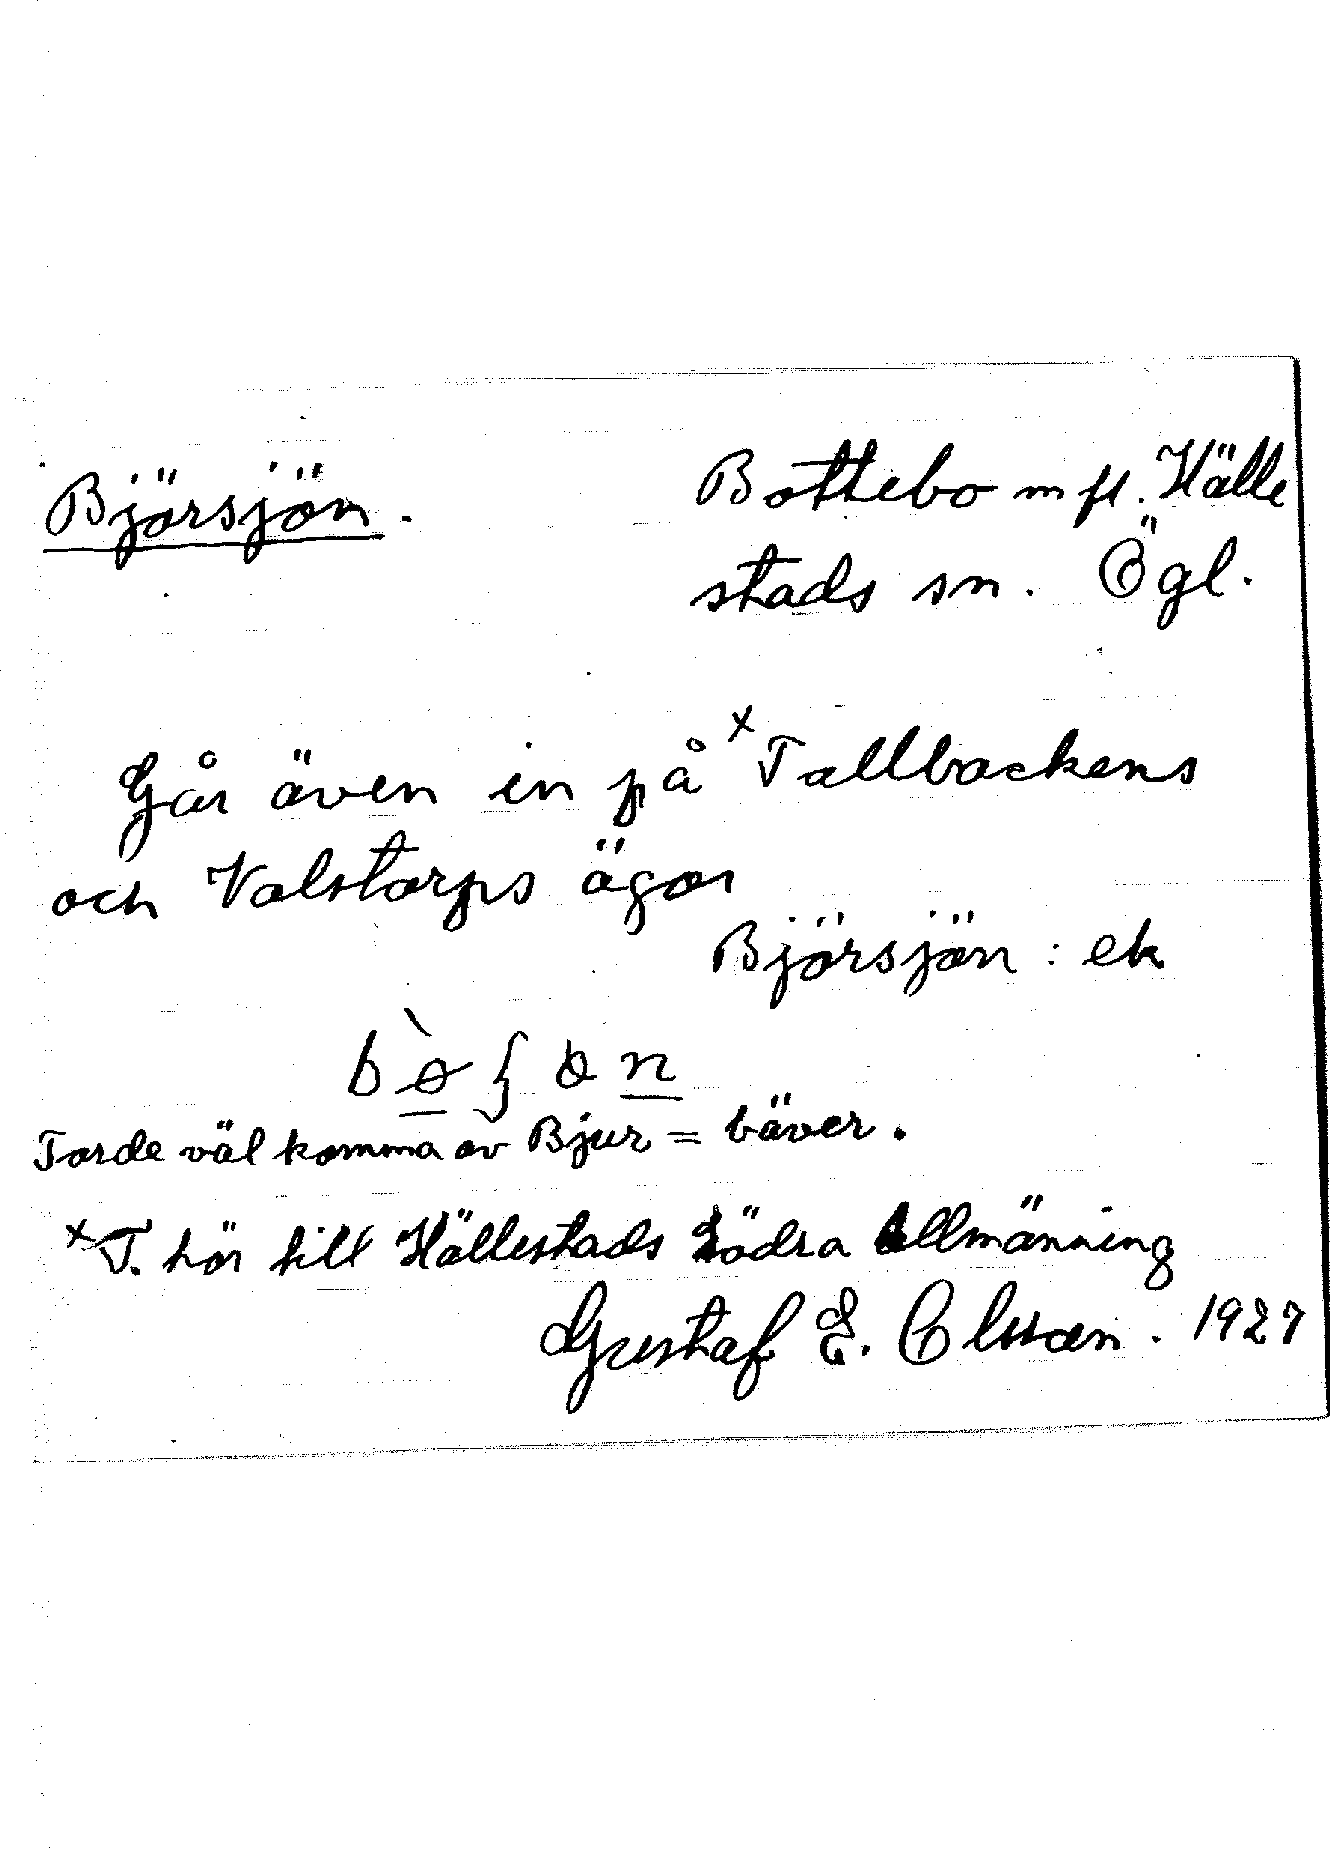 Björsjön.
Bottebo m fl. Hälle
stads sn. Ögl.
Går även in på x Tallbackens
och Valstorps ägor
Björsjön : ek
Torde väl komma av Bjur = bäver.
x T. hör till Hällestads södra allmänning
Gustaf E. Olsson. 1927